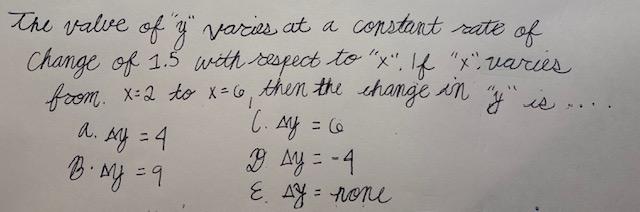 The value of "y" varies at a constant rate of
Change of 1.5 with respect to "x". If "x" varies
from. x=2 to x=6, then the change in "y" is ....
a. Δy = 4
C. Δy = 6
B. Δy = 9
D Δy = -4
E. Δy = none